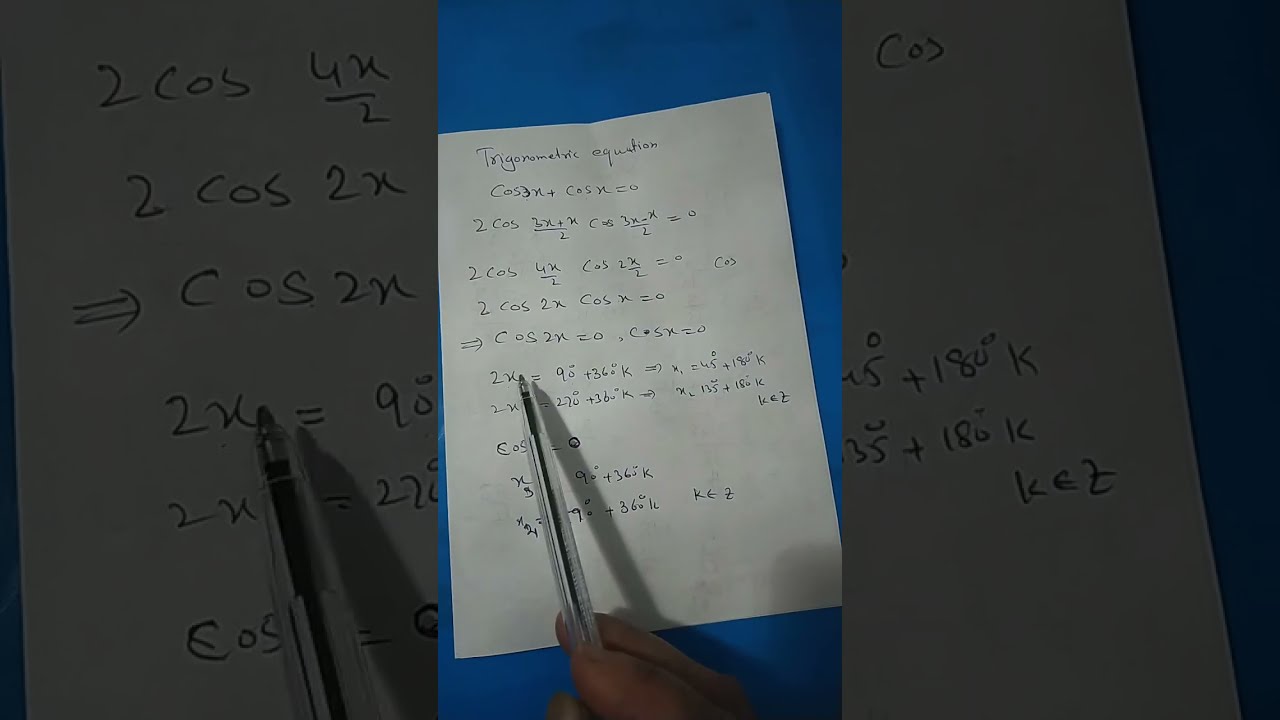 Trigonometric equation
Cos3x + Cosx = 0
2 Cos 3x+x/2 Cos 3x-x/2 = 0
2 Cos 4x/2 Cos 2x/2 = 0 Cos
2 Cos 2x Cos x = 0
⇒ Cos 2x = 0 , Cosx = 0
2x = 90° + 360°K ⇒ x₁ = 45° + 180°K
2x = 270° + 360°K ⇒ x₂ 135° + 180°K
K∈Z
Cos = 0
x₃ 90° + 360°K
90° + 360°K K∈Z